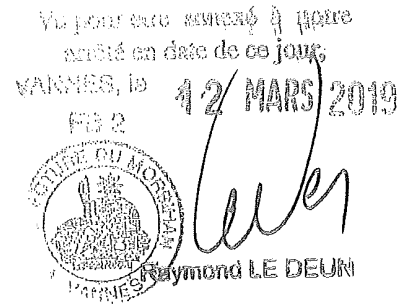 Vu pour être annexé à notre
arrêté en date de ce jour,
VANNES, le 12 MARS 2019
PREFECTURE DU MORBIHAN
VANNES
Raymond LE DEUN